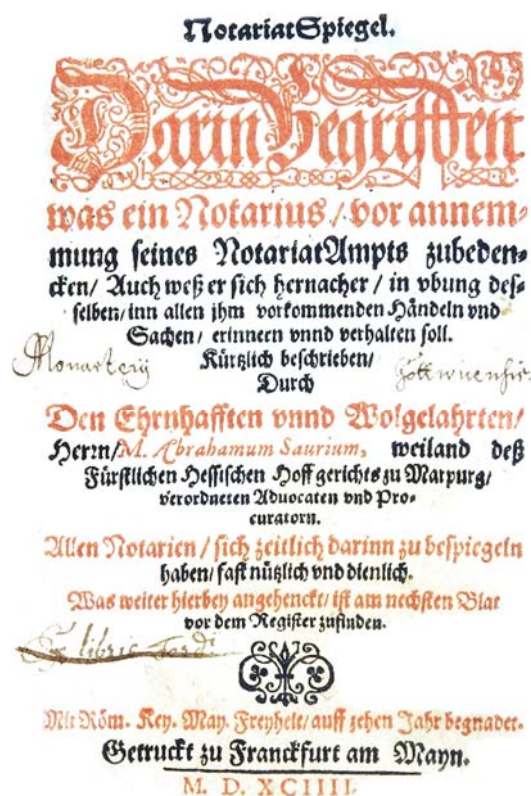 NotariatSpiegel.
Darin begriffen
was ein Notarius/ vor annem-
mung seines NotariatAmpts zubeden-
cken/ Auch weß er sich hernacher/ in vbung des-
selben/ inn allen jhm vorkommenden Händeln vnd
Sachen/ erinnern vnnd verhalten soll.
Monasterij
Kürtzlich beschrieben/
Durch
Den Ehrnhafften vnnd Wolgelahrten/
Herrn/ M. Abrahamum Saurium, weiland deß
Fürstlichen Hessischen Hoffgerichts zu Marpurg/
verordneten Aduocaten vnd Pro-
curatorn.
Allen Notarien/ sich zeitlich darinn zu bespiegeln
haben/ fast nützlich vnd dienlich.
Was weiter hierbey angehenckt/ ist am nechsten Blat
vor dem Register zufinden.
Ex libris
Mit Röm. Key. May. Freyheit/ auff zehen Jahr begnadet.
Getruckt zu Franckfurt am Mayn.
M. D. XCIIII.